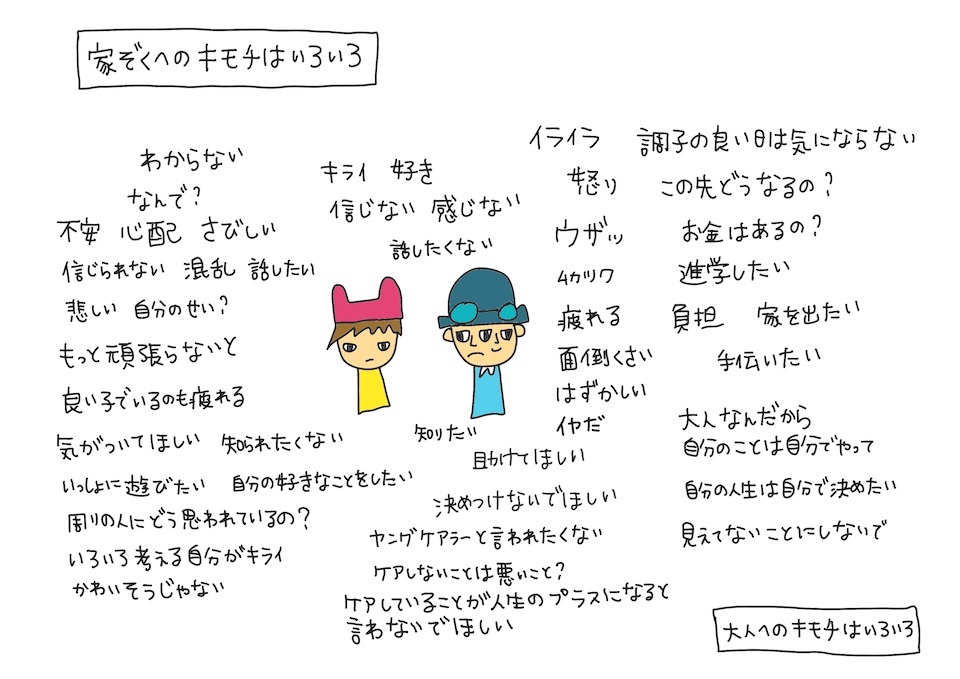 家ぞくへのキモチはいろいろ
わからない
なんで?
不安 心配 さびしい
信じられない 混乱 話したい
悲しい 自分のせい?
もっと頑張らないと
良い子でいるのも疲れる
気がついてほしい 知られたくない
いっしょに遊びたい 自分の好きなことをしたい
周りの人にどう思われているの?
いろいろ考える自分がキライ
かわいそうじゃない
キライ 好き
信じない 感じない
話したくない
知りたい
助けてほしい
決めつけないでほしい
ヤングケアラーと言われたくない
ケアしないことは悪いこと?
ケアしていることが人生のプラスになると
言わないでほしい
イライラ
怒り
ウザッ
ムカツク
疲れる
面倒くさい
はずかしい
イヤだ
調子の良い日は気にならない
この先どうなるの?
お金はあるの?
進学したい
負担 家を出たい
手伝いたい
大人なんだから
自分のことは自分でやって
自分の人生は自分で決めたい
見えてないことにしないで
大人へのキモチはいろいろ